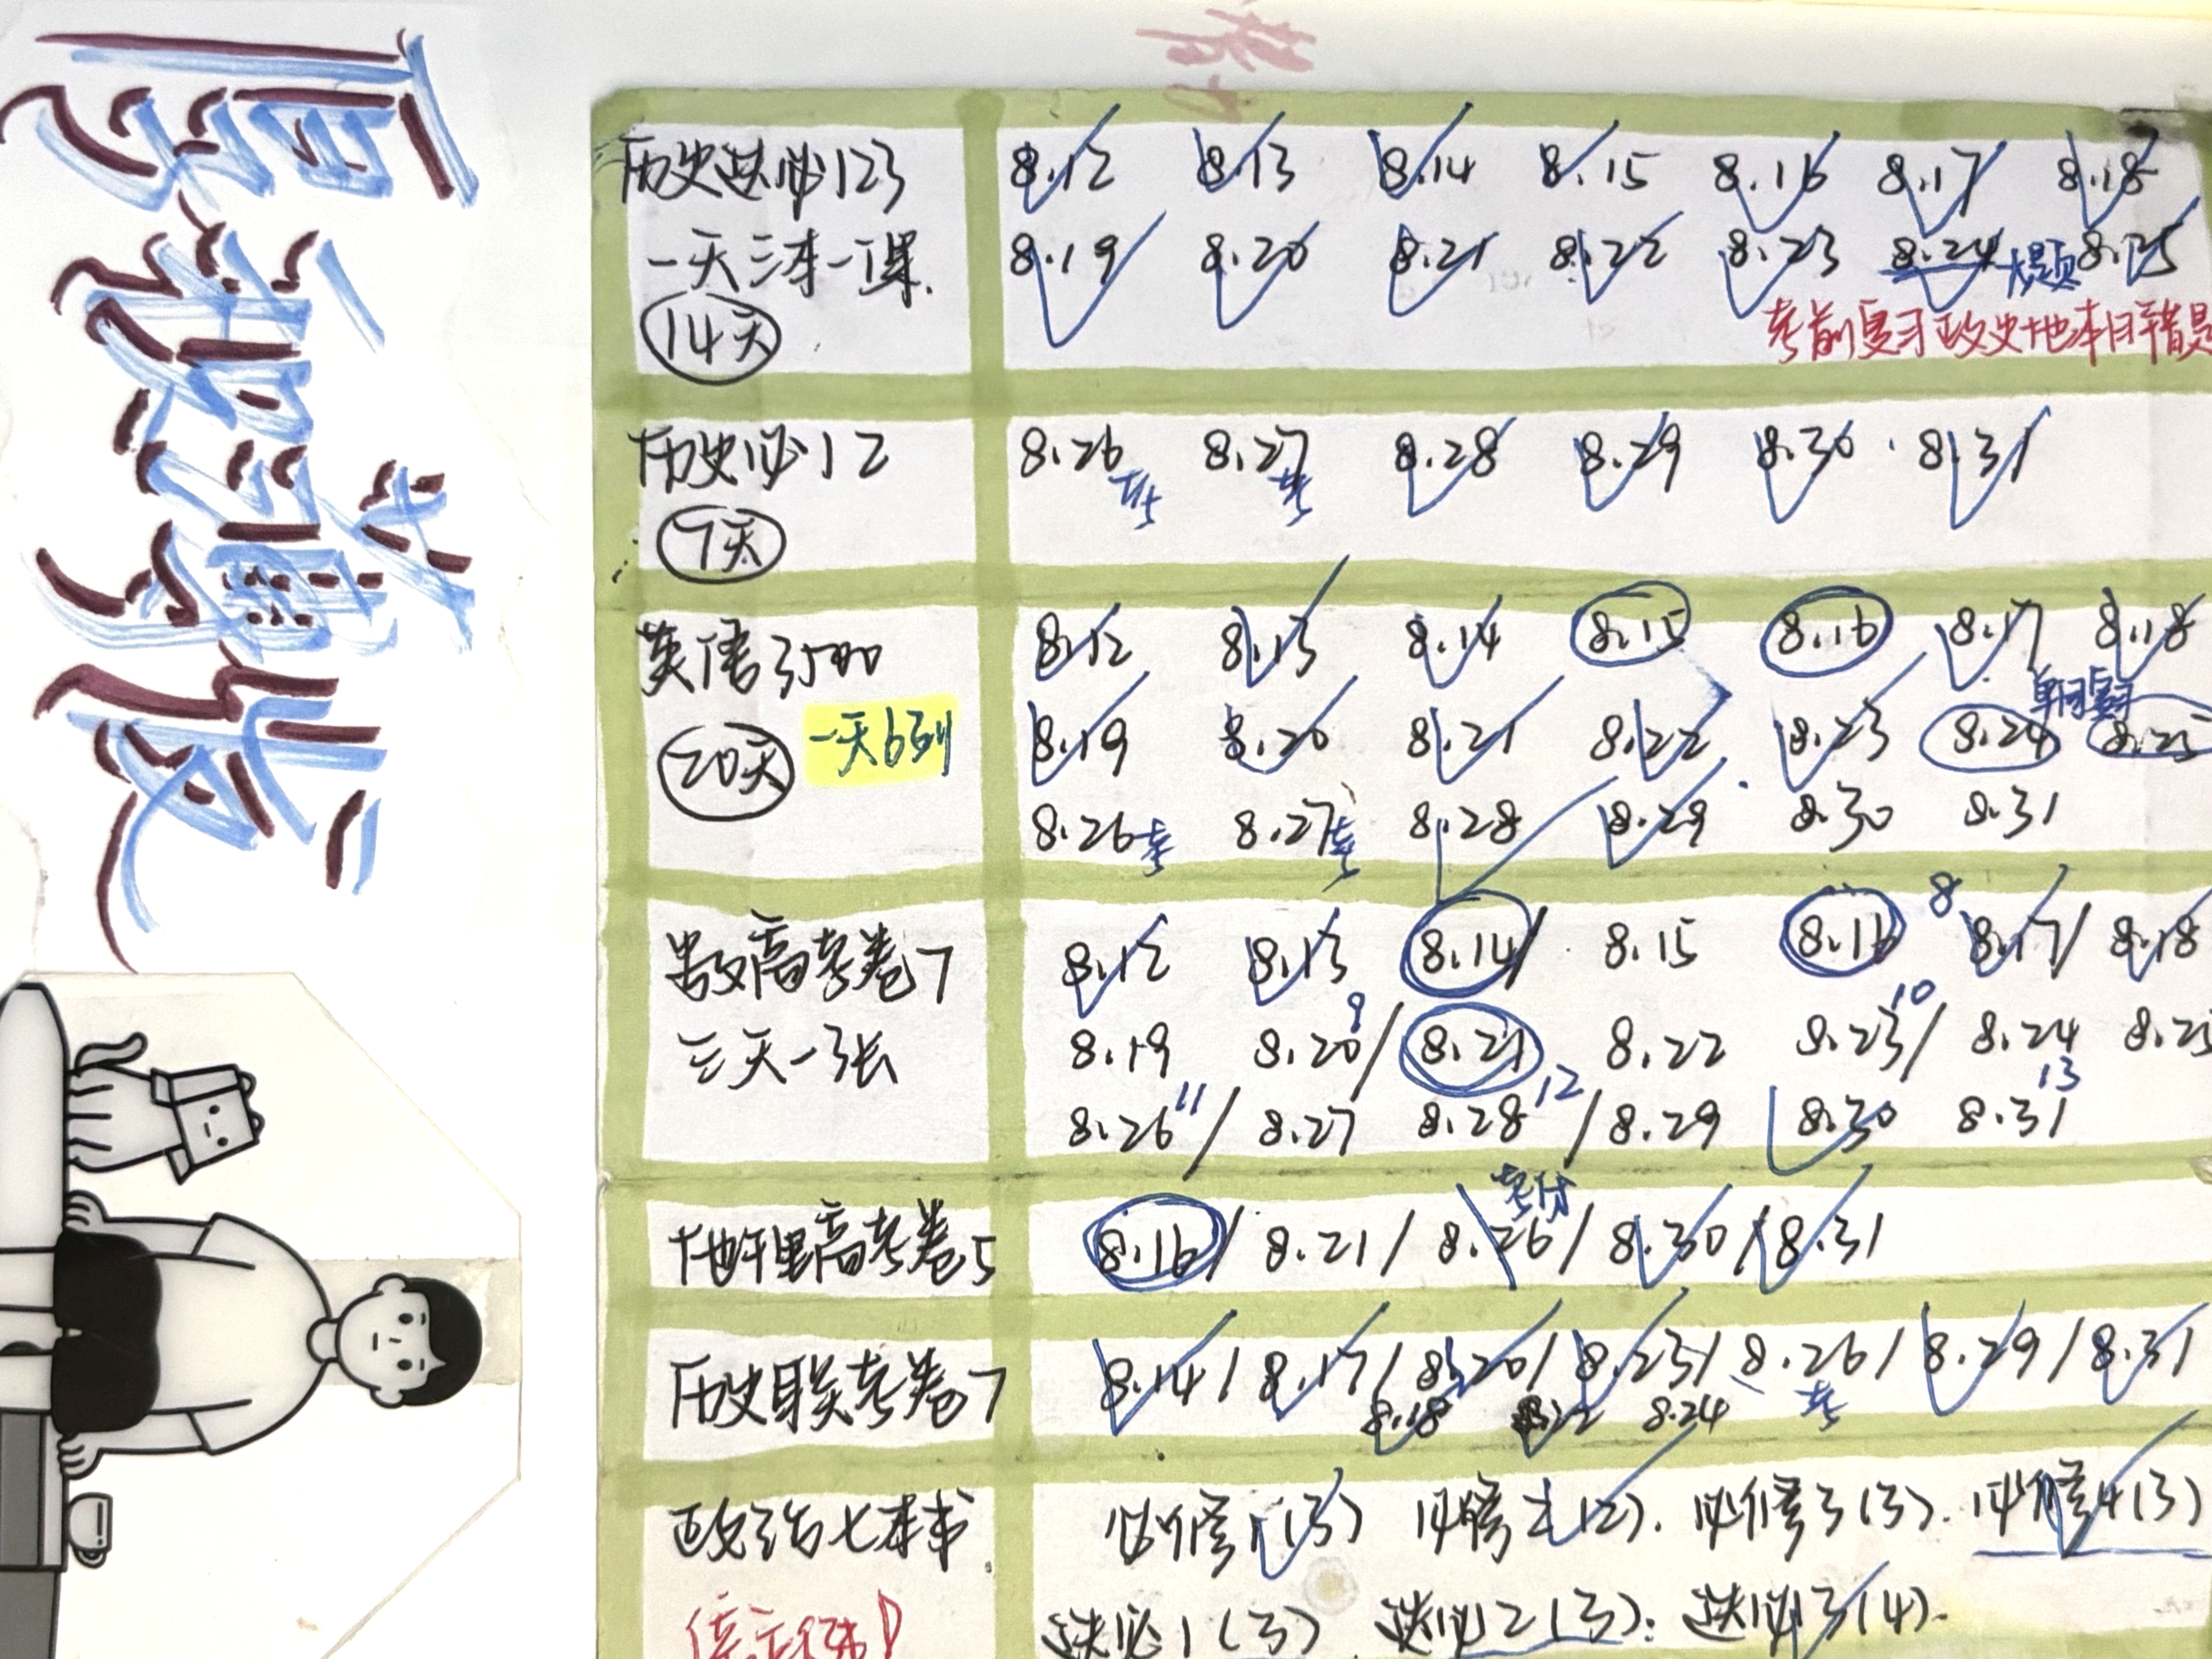 历史选必123
一天三本一课.
14天
8.12 8.13 8.14 8.15 8.16 8.17 8.18
8.19 8.20 8.21 8.22 8.23 8.24 大题 8.25
考前复习政史地本月错题
历史必12
7天
8.26考 8.27考 8.28 8.29 8.30 8.31
英语3500
20天
一天6列
8.12 8.13 8.14 8.15 8.16 8.17 8.18
8.19 8.20 8.21 8.22 8.23 8.24 8.25
8.26考 8.27考 8.28 8.29 8.30 8.31
数高考卷7
三天一张
8.12 8.13 8.14/ 8.15 8.16 8 8.17/ 8.18
8.19 8.20 9/ 8.21 8.22 8.23 10/ 8.24 8.25
8.26 11/ 8.27 8.28 12/ 8.29 8.30 8.31 13
地理高考卷5
8.16/ 8.21/ 8.26/ 8.30/ 8.31
历史联考卷7
8.14/ 8.17/ 8.20/ 8.23/ 8.26考/ 8.29/ 8.31
8.18 8.22 8.24
政治七本书.
必修1(3) 必修2(2). 必修3(3). 必修4(3)
选必1(3) 选必2(3). 选必3(4).